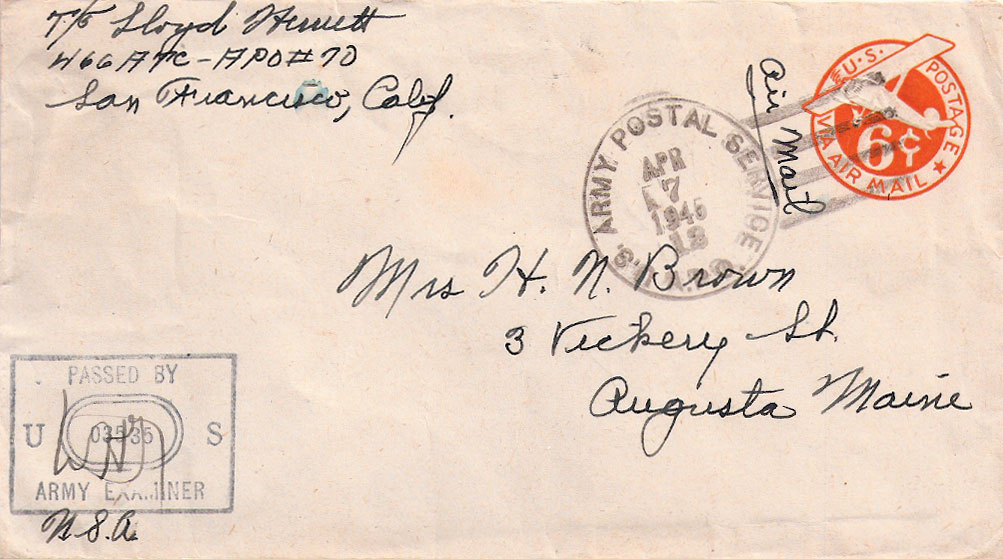 T/5 Lloyd Hewett
466 ATC - APO # 70
San Francisco, Calif.
Air Mail
U.S. POSTAGE
6¢
VIA AIR MAIL
ARMY POSTAL SERVICE
APR
7
1945
12
Mrs H. N. Brown
3 Vickery St.
Augusta Maine
PASSED BY
U 03535 S
ARMY EXAMINER
U.S.A.